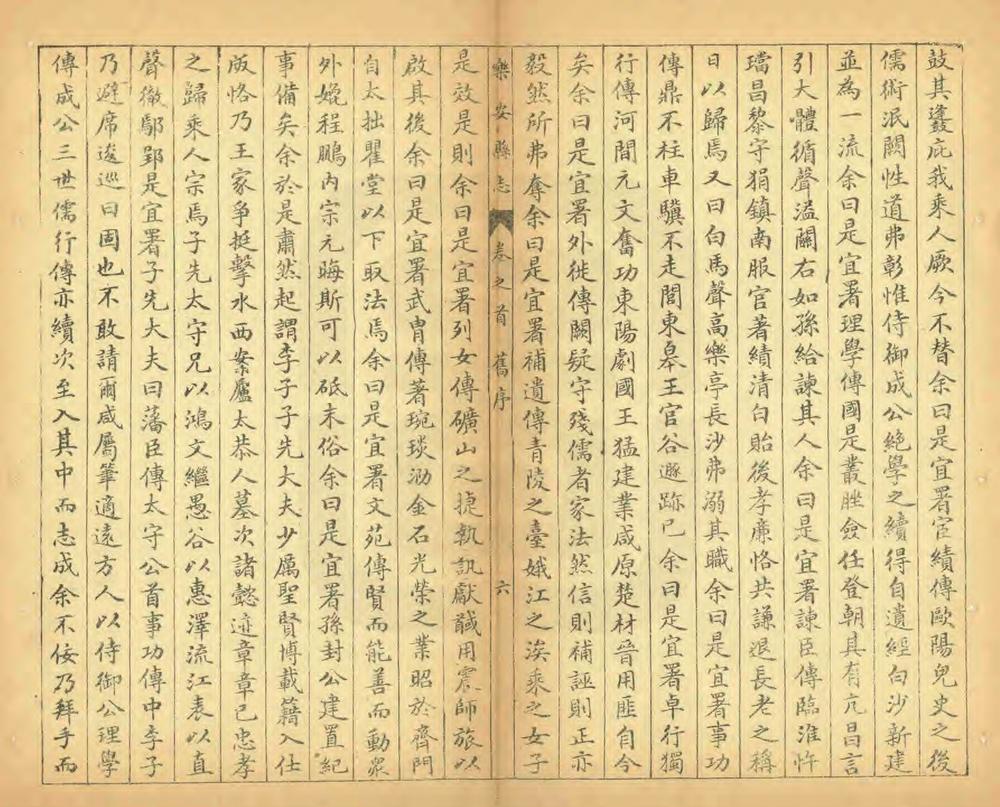 鼓其鼛庇我乘人厥今不替余曰是宜署宦績傳歐陽兒史之後
儒術泯闕性道弗彰惟侍御成公絶學之續得自遺經白沙新建
並為一流余曰是宜署理學傳國是叢脞僉任登朝其有亢昌言
引大體循聲溢關右如孫給諫其人余曰是宜署諫臣傳臨淮忤
璫昌黎守狷鎮南服官著績清白貽後孝廉恪共謙退長老之稱
曰以歸焉又曰白馬聲高樂亭長沙弗溺其職余曰是宜署事功
傳鼎不柱車驥不走閭東皋王官谷遯跡已余曰是宜署卓行獨
行傳河間元文奮功東陽劇國王猛建業咸原楚材晉用匪自今
矣余曰是宜署外徙傳闕疑守殘儒者家法然信則補誣則正亦
毅然所弗奪余曰是宜署補遺傳青陵之臺娥江之涘乘之女子
樂安縣志 卷之首 舊序 六
是效是則余曰是宜署列女傳礦山之捷執訊獻馘用震師旅以
啟其後余曰是宜署武胄傳著琬琰泐金石光榮之業昭於齊門
自太拙瞿堂以下取法焉余曰是宜署文苑傳賢而能善而動眾
外媲程鵬內宗元晦斯可以砥末俗余曰是宜署孫封公建置紀
事備矣余於是肅然起謂李子子先大夫少厲聖賢博載籍入仕
版恪乃王家爭挺擊水西案廬太恭人墓次諸懿迹章章已忠孝
之歸乘人宗焉子先太守兄以鴻文繼愚谷以惠澤流江表以直
聲徹鄢郢是宜署子先大夫曰藩臣傳太守公首事功傳中李子
乃避席逡巡曰固也不敢請爾咸屬筆適遠方人以侍御公理學
傳成公三世儒行傳亦續次至入其中而志成余不佞乃拜手而